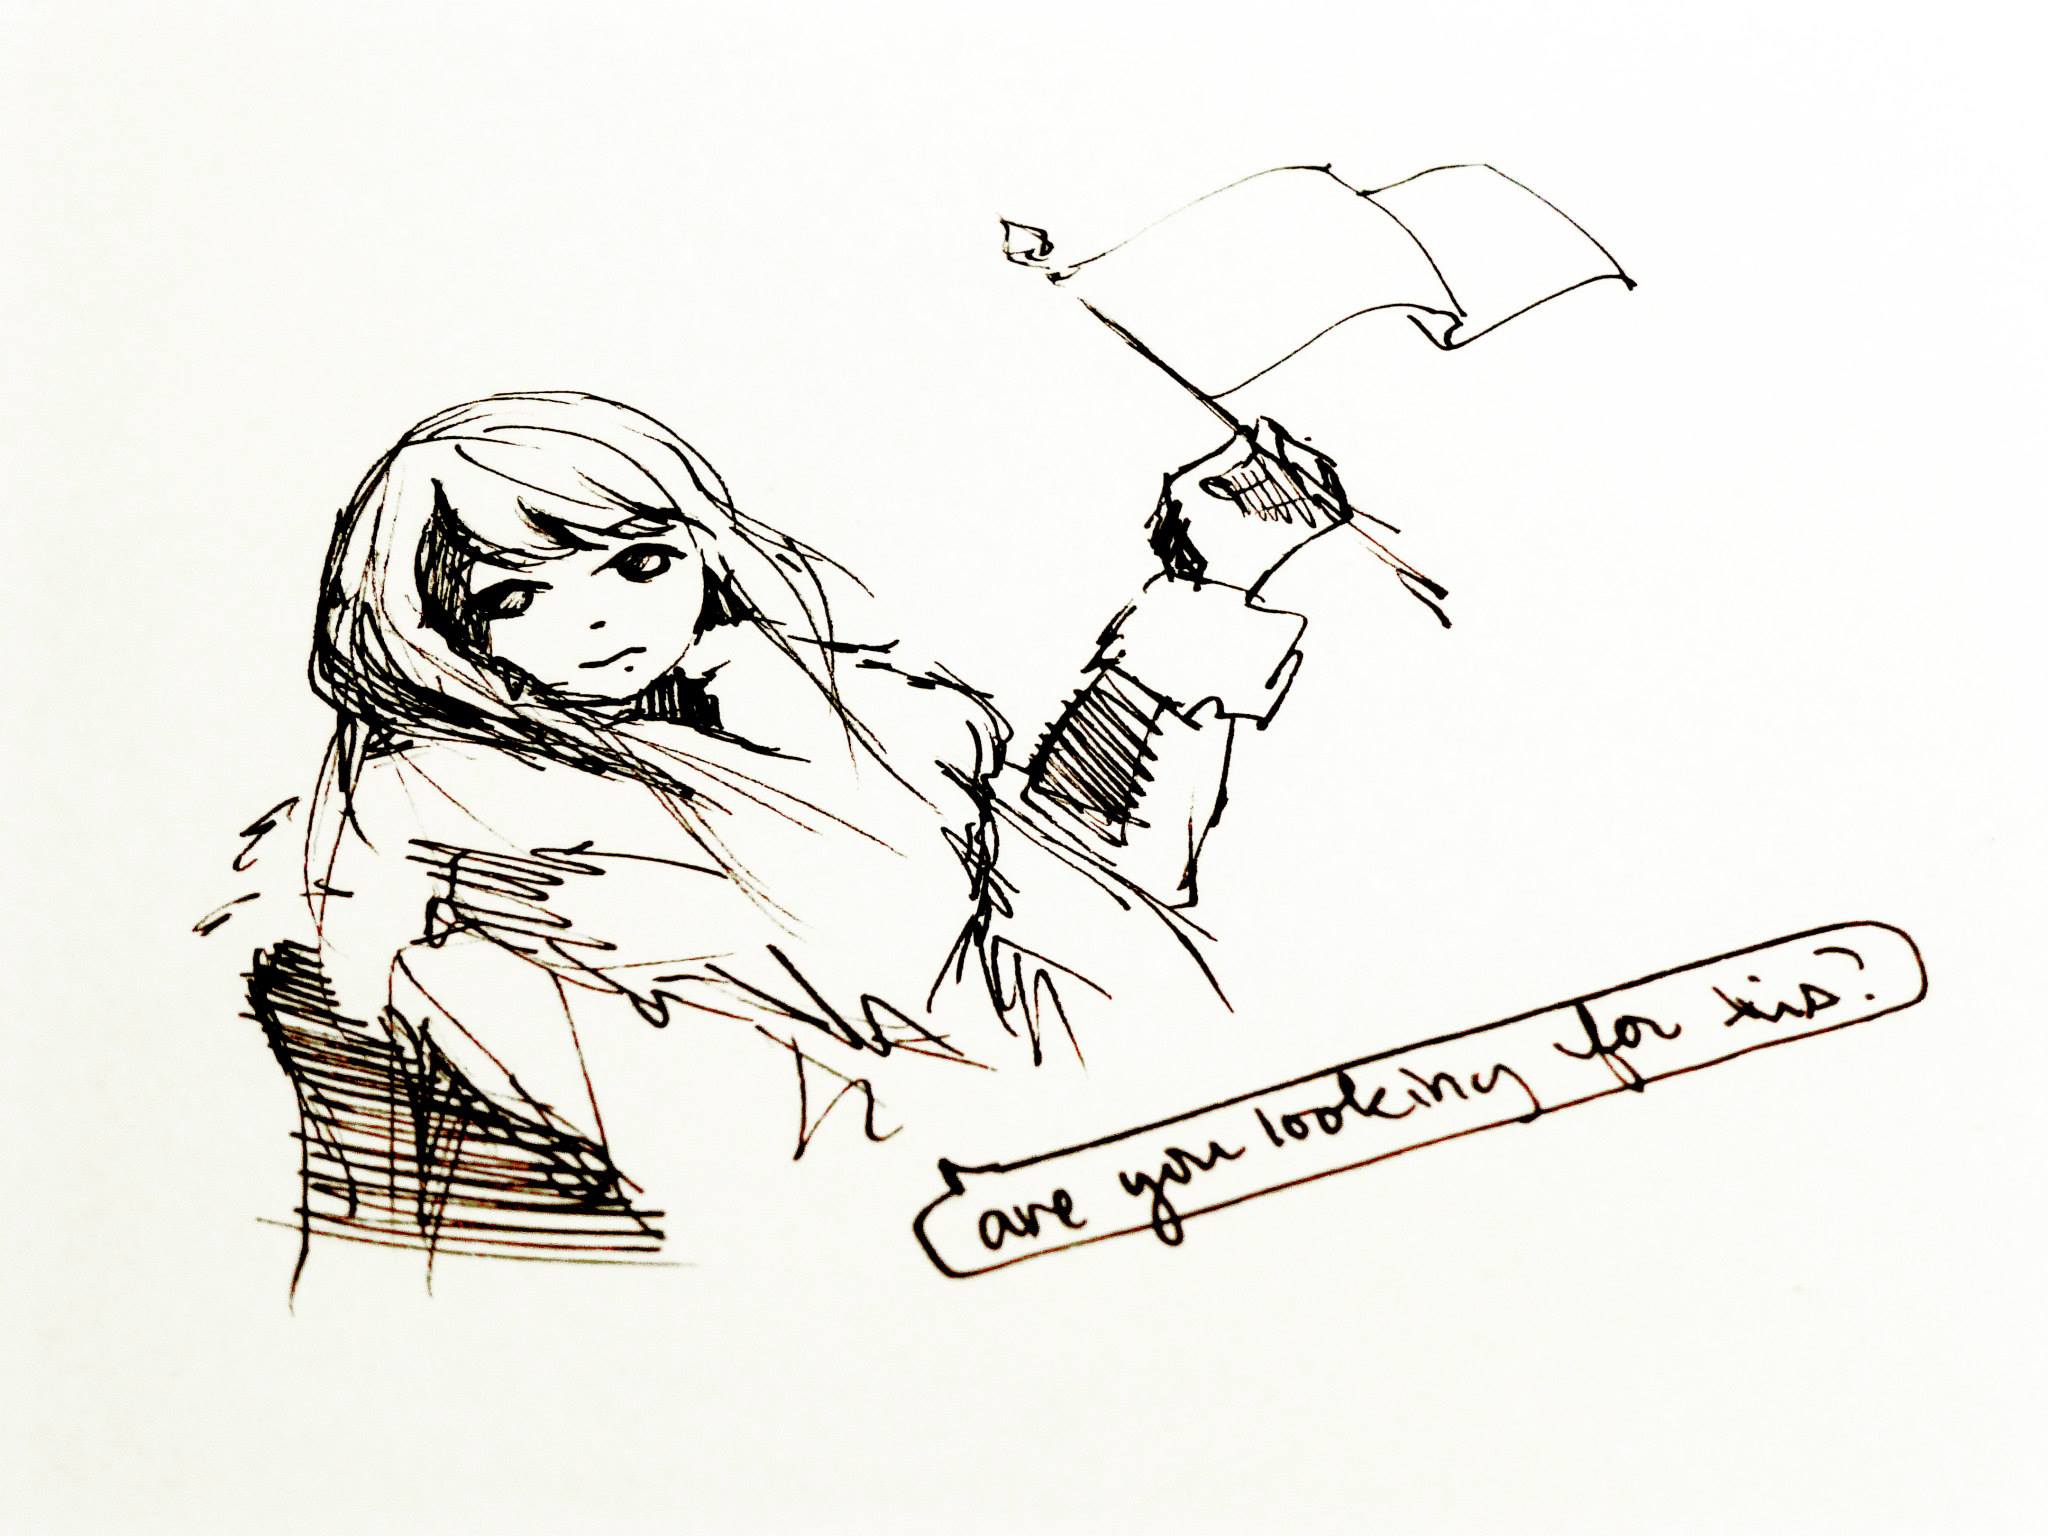 are you looking for this?